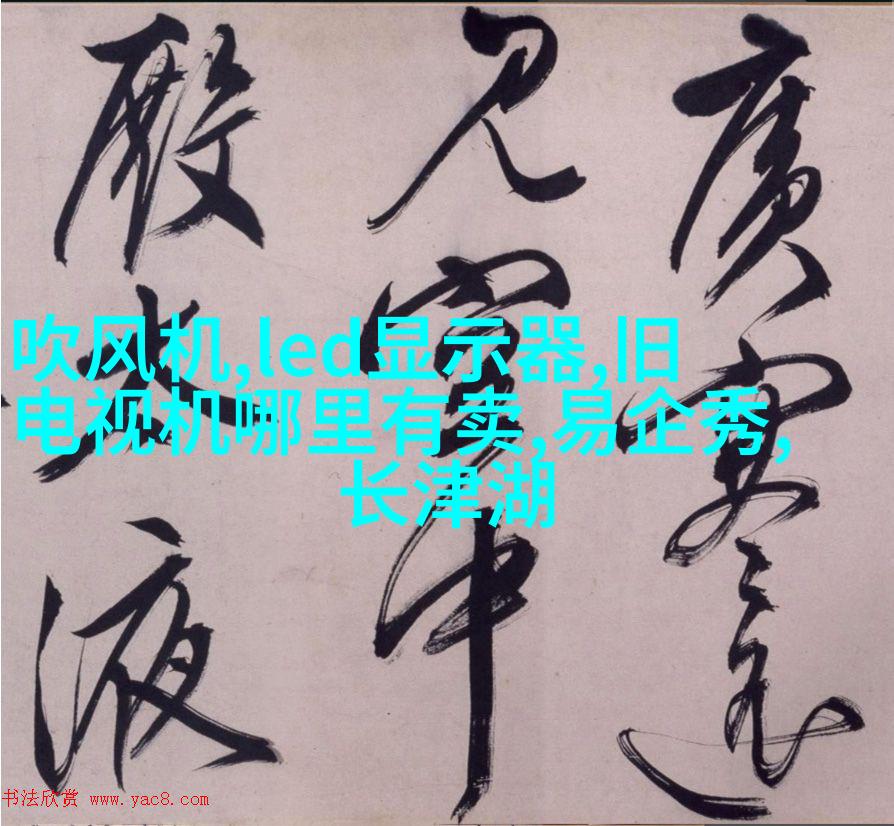 廣寒遙
見空中
殿太液
吹风机,led显示器,旧
电视机哪里有卖,易企秀,
长津湖
书法欣赏 www.yac8.com